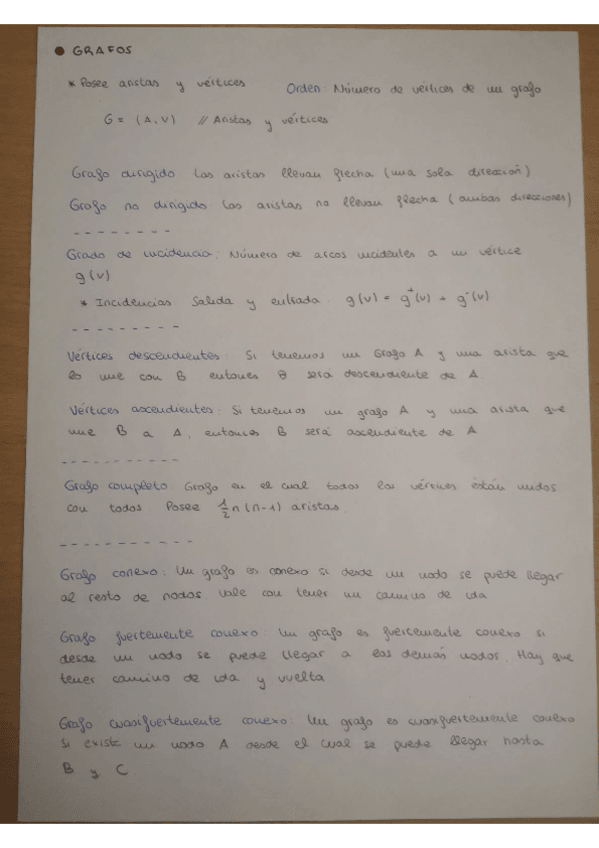 • GRAFOS
* Posee aristas y vértices Orden: Número de vértices de un grafo
G = (A, V) // Aristas y vértices
Grafo dirigido Las aristas llevan flecha (una sola dirección)
Grafo no dirigido Las aristas no llevan flecha (ambas direcciones)
--------
Grado de incidencia: Número de arcos incidentes a un vértice
g(v)
* Incidencias Salida y entrada. g(v) = g⁺(v) + g⁻(v)
---------
Vértices descendientes: Si tenemos un Grafo A y una arista que
lo une con B entonces B será descendiente de A
Vértices ascendientes: Si tenemos un grafo A y una arista que
une B a A, entonces B será ascendiente de A
----------
Grafo completo: Grafo en el cual todos los vértices están unidos
con todos. Posee ½n(n-1) aristas.
-----------
Grafo conexo: Un grafo es conexo si desde un nodo se puede llegar
al resto de nodos. Vale con tener un camino de ida
Grafo fuertemente conexo: Un grafo es fuertemente conexo si
desde un nodo se puede llegar a los demás nodos. Hay que
tener camino de ida y vuelta
Grafo cuasifuertemente conexo: Un grafo es cuasifuertemente conexo
si existe un nodo A desde el cual se puede llegar hasta
B y C